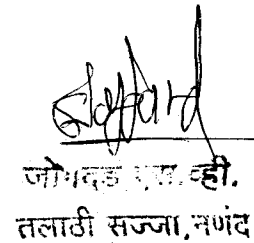 जोगदंड एस. व्ही.
तलाठी सज्जा, नणंद